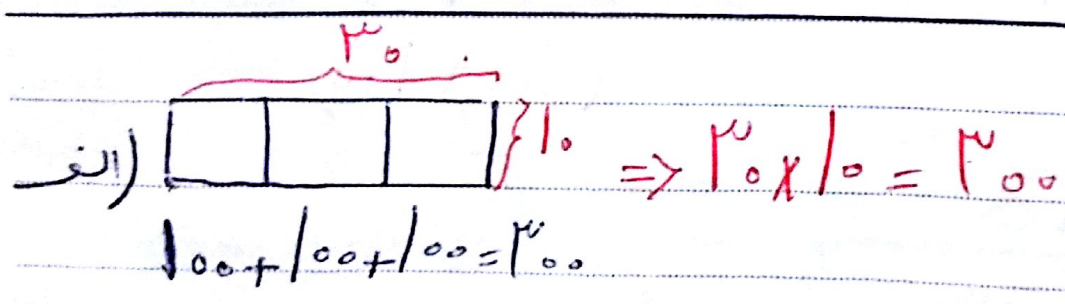 ۳۰
الف) ۱۰ => ۳۰ × ۱۰ = ۳۰۰
۱۰۰ + ۱۰۰ + ۱۰۰ = ۳۰۰